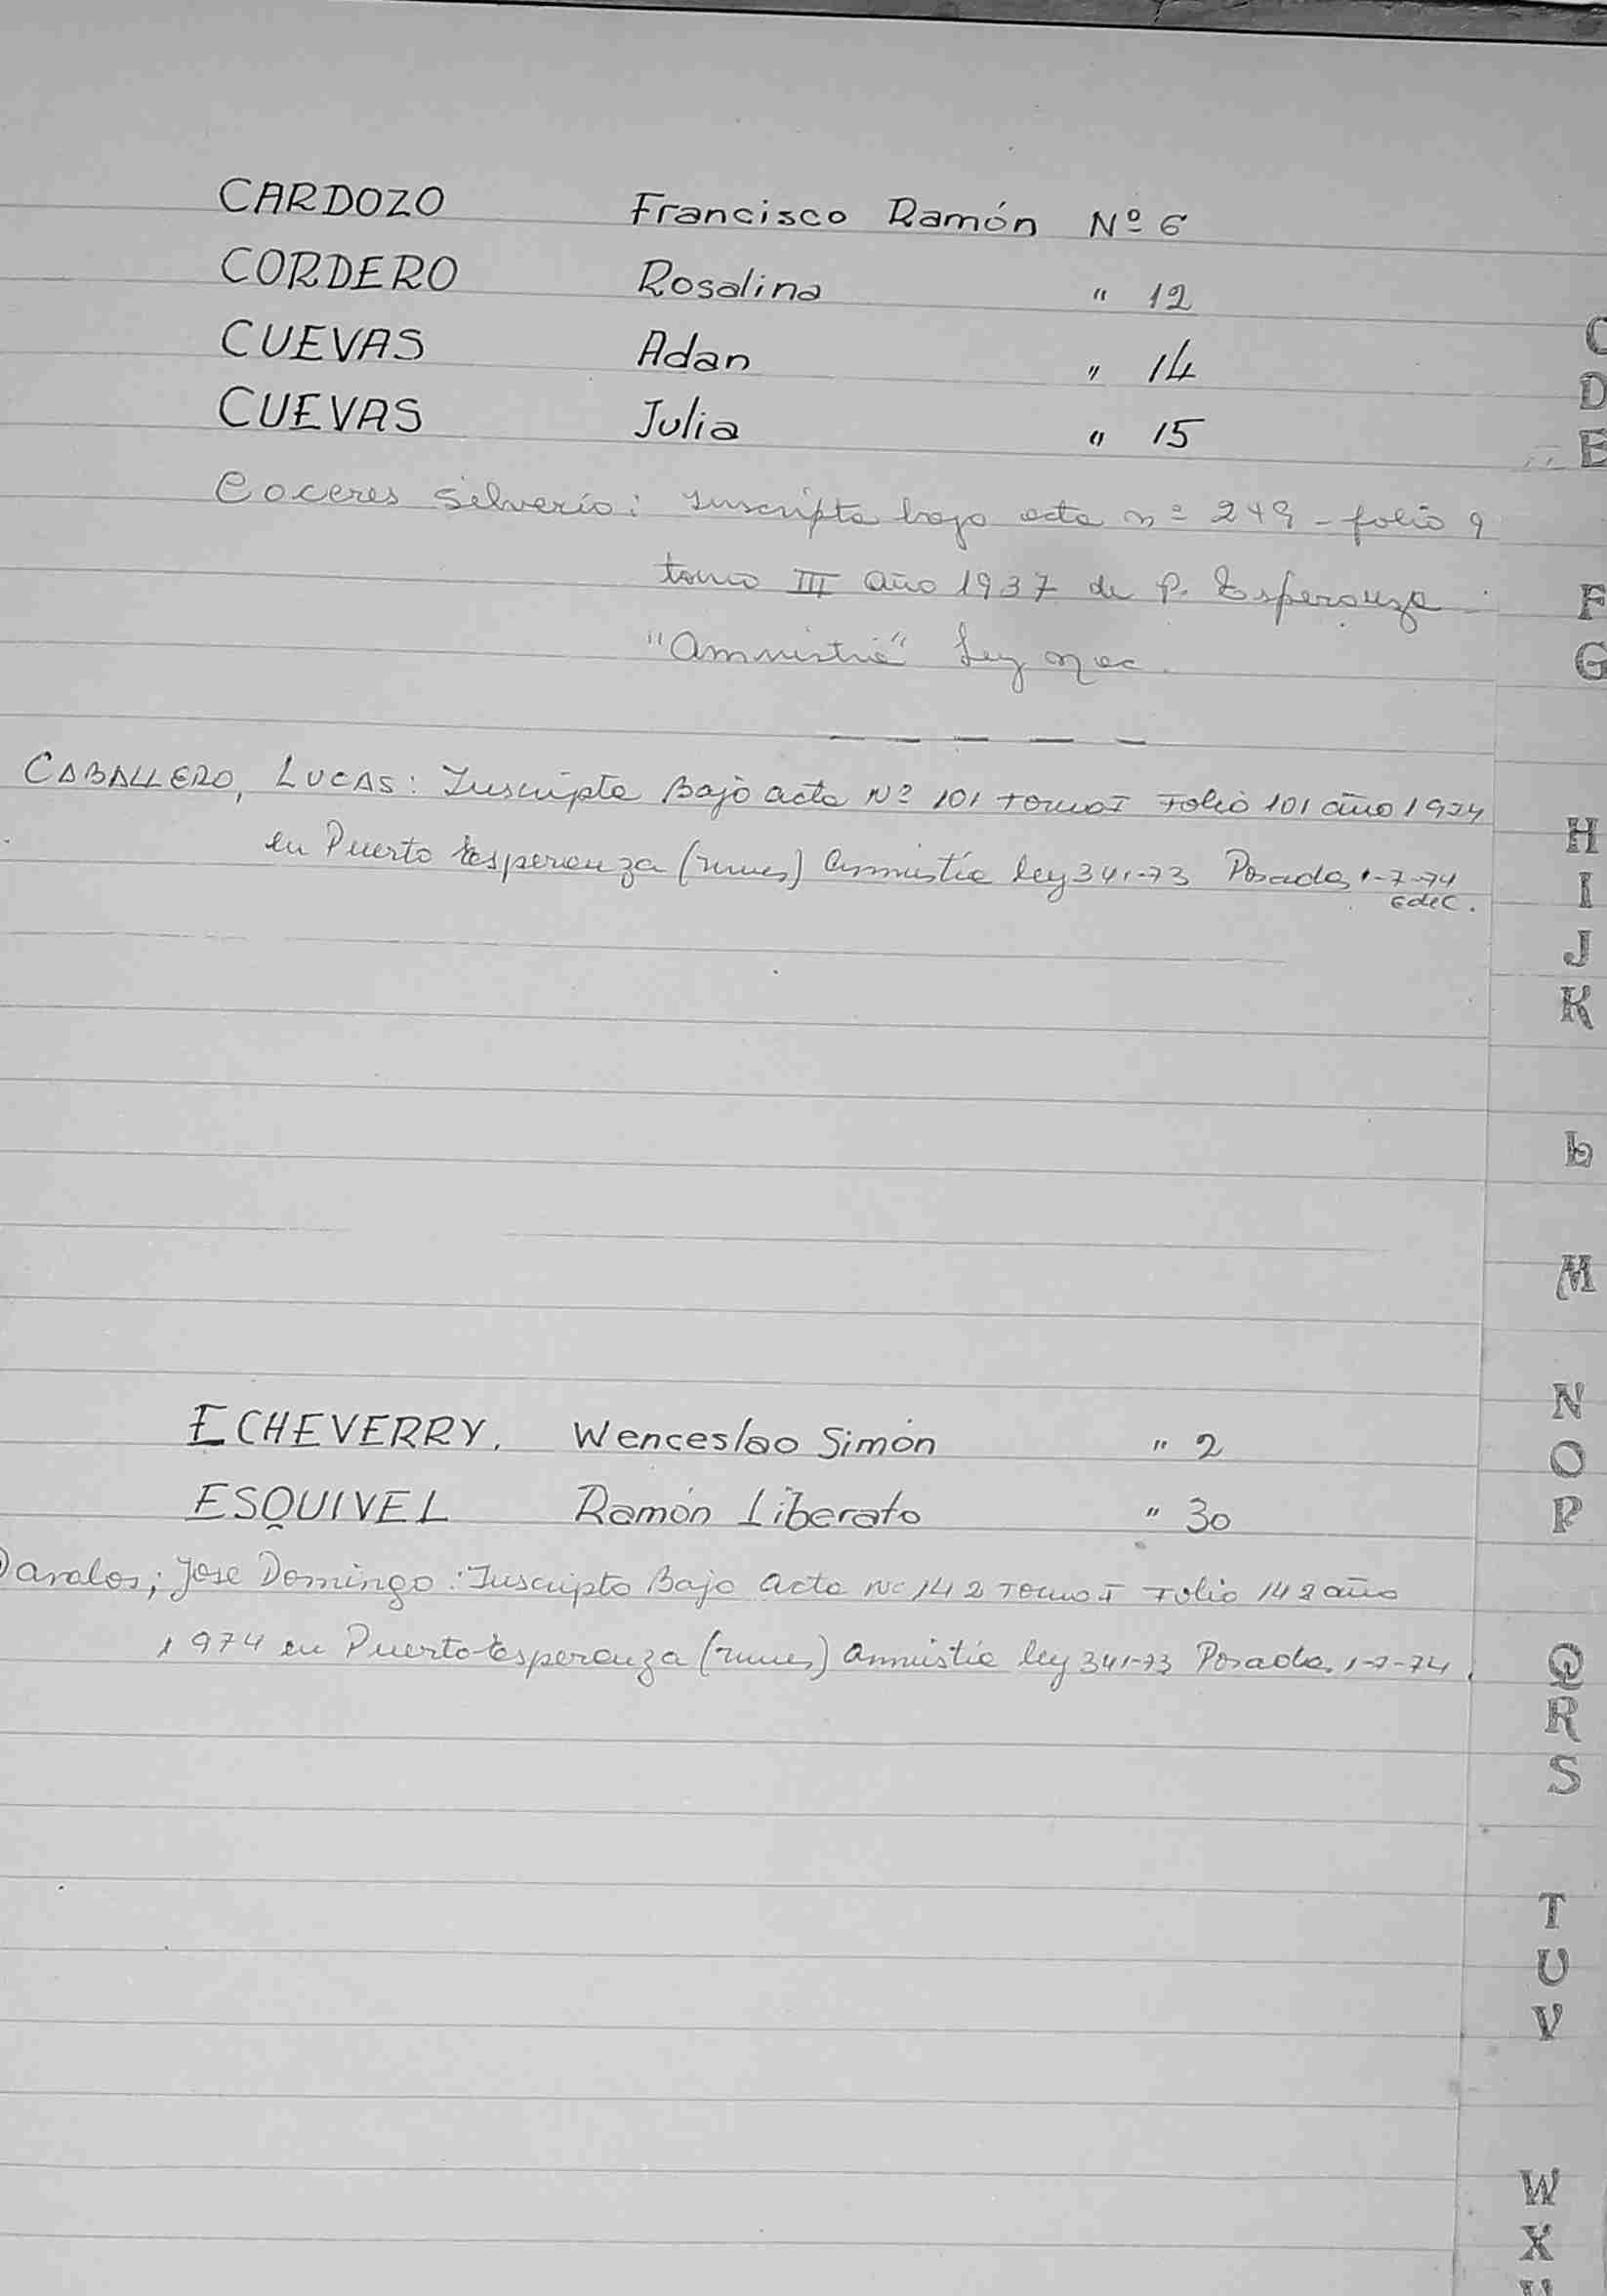 CARDOZO Francisco Ramón Nº 6
CORDERO Rosalina " 12
CUEVAS Adan " 14
CUEVAS Julia " 15
Coceres Silverio: Inscripta bajo acta nº 249 - folio 9
tomo III año 1937 de P. Esperanza
"Amnistia" Ley nac.
CABALLERO, LUCAS: Inscripta Bajo acta Nº 101 tomo I Folio 101 año 1974
en Puerto Esperanza (mnes) amnistía ley 341-73 Posadas 1-7-74
EdeC.
ECHEVERRY. Wenceslao Simón " 2
ESQUIVEL Ramón Liberato " 30
Davalos, Jose Domingo: Inscripto Bajo acta Nº 142 Tomo I Folio 142 año
1974 en Puerto Esperanza (mnes) amnistía ley 341-73 Posadas 1-7-74.
C
D
E
F
G
H
I
J
K
L
M
N
O
P
Q
R
S
T
U
V
W
X